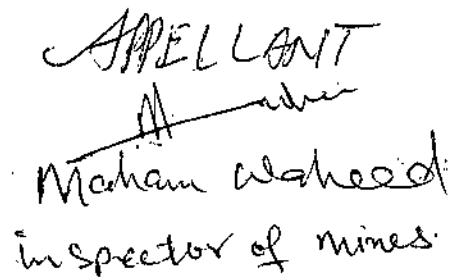 APPELLANT
Maham Waheed
inspector of mines.